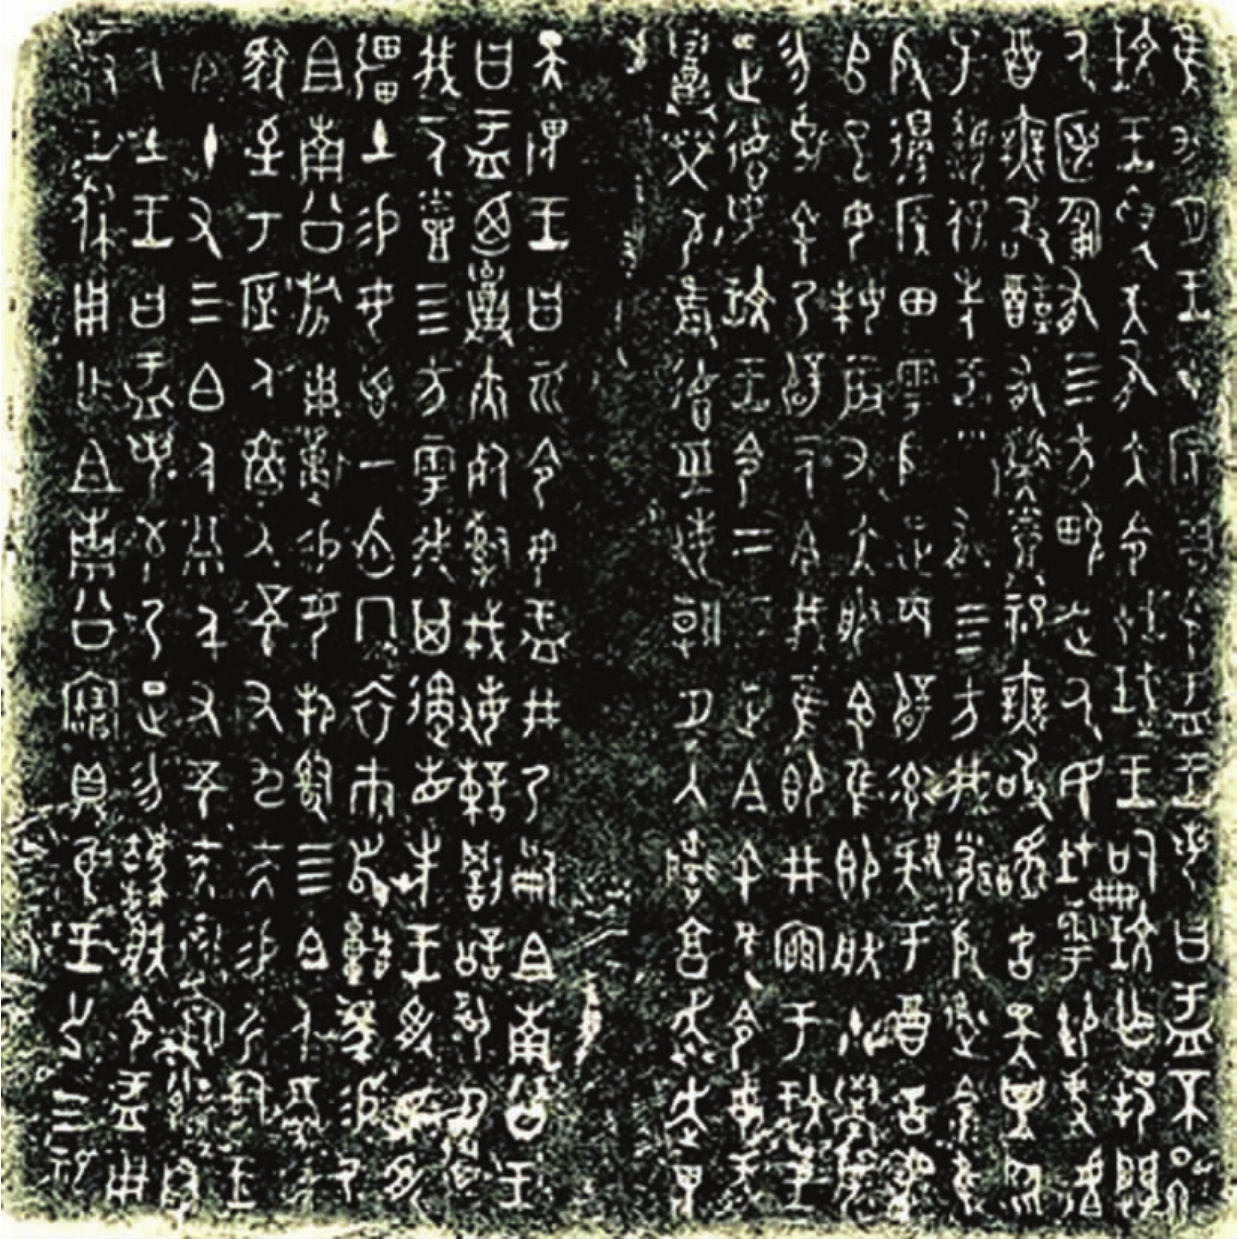 隹九月王才宗周令盂王若曰盂不顯
玟王受天有大令在珷王嗣玟乍邦闢
厥匿匍有四方畯正厥民在雩御事𠭯
酉無敢酖有髭烝祀無敢醻古天異臨
子法保先王有四方我聞殷述令隹
殷邊侯田雩殷正百辟率肄于酉古喪
師已女妹辰又大服余隹即朕小學女
勿余乃辟一人今我隹即井㐭于玟王
正德若玟王令二三正今余隹令女盂
召榮敬雝德巠敏朝夕入讕享奔走畏
天畏王曰令女盂井乃嗣且南公王
曰盂廼召夾死司戎敏諫罰訟夙夕召
我一人烝四方雩我其遹省先王受民受
彊土易女鬯一卣冂衣巿舄車馬易乃
且南公旂用狩易女邦司四白人鬲自
馭至于庶人六百又五十又九夫易尸司王
臣十又三白人鬲千又五十夫自
厥土王曰盂若敬乃正勿法朕令盂用
對王休用乍且南公寶鼎隹王廿又三祀